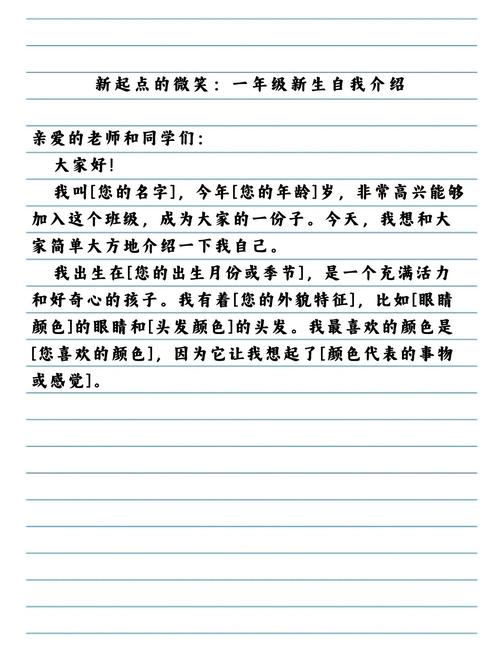 新起点的微笑：一年级新生自我介绍
亲爱的老师和同学们：
大家好！
我叫[您的名字]，今年[您的年龄]岁，非常高兴能够
加入这个班级，成为大家的一份子。今天，我想和大
家简单大方地介绍一下我自己。
我出生在[您的出生月份或季节]，是一个充满活力
和好奇心的孩子。我有着[您的外貌特征]，比如[眼睛
颜色]的眼睛和[头发颜色]的头发。我最喜欢的颜色是
[您喜欢的颜色]，因为它让我想起了[颜色代表的事物
或感觉]。